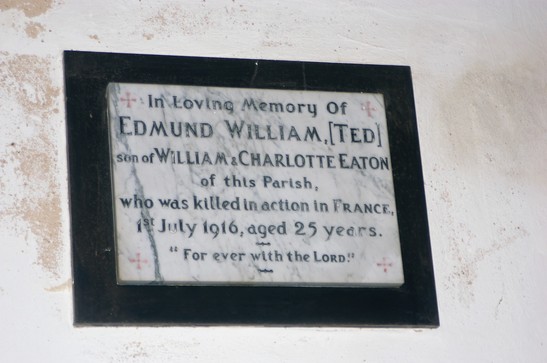 In Loving Memory Of
EDMUND WILLIAM, [TED]
son of WILLIAM & CHARLOTTE EATON
of this Parish,
who was killed in action in FRANCE,
1st July 1916, aged 25 years.
"FOR EVER WITH THE LORD."